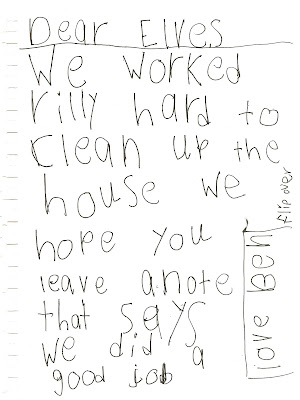 Dear Elves
We worked
rilly hard to
clean up the
house we
hope you
leave a note
that says
we did a
good job
love Ben
flip over